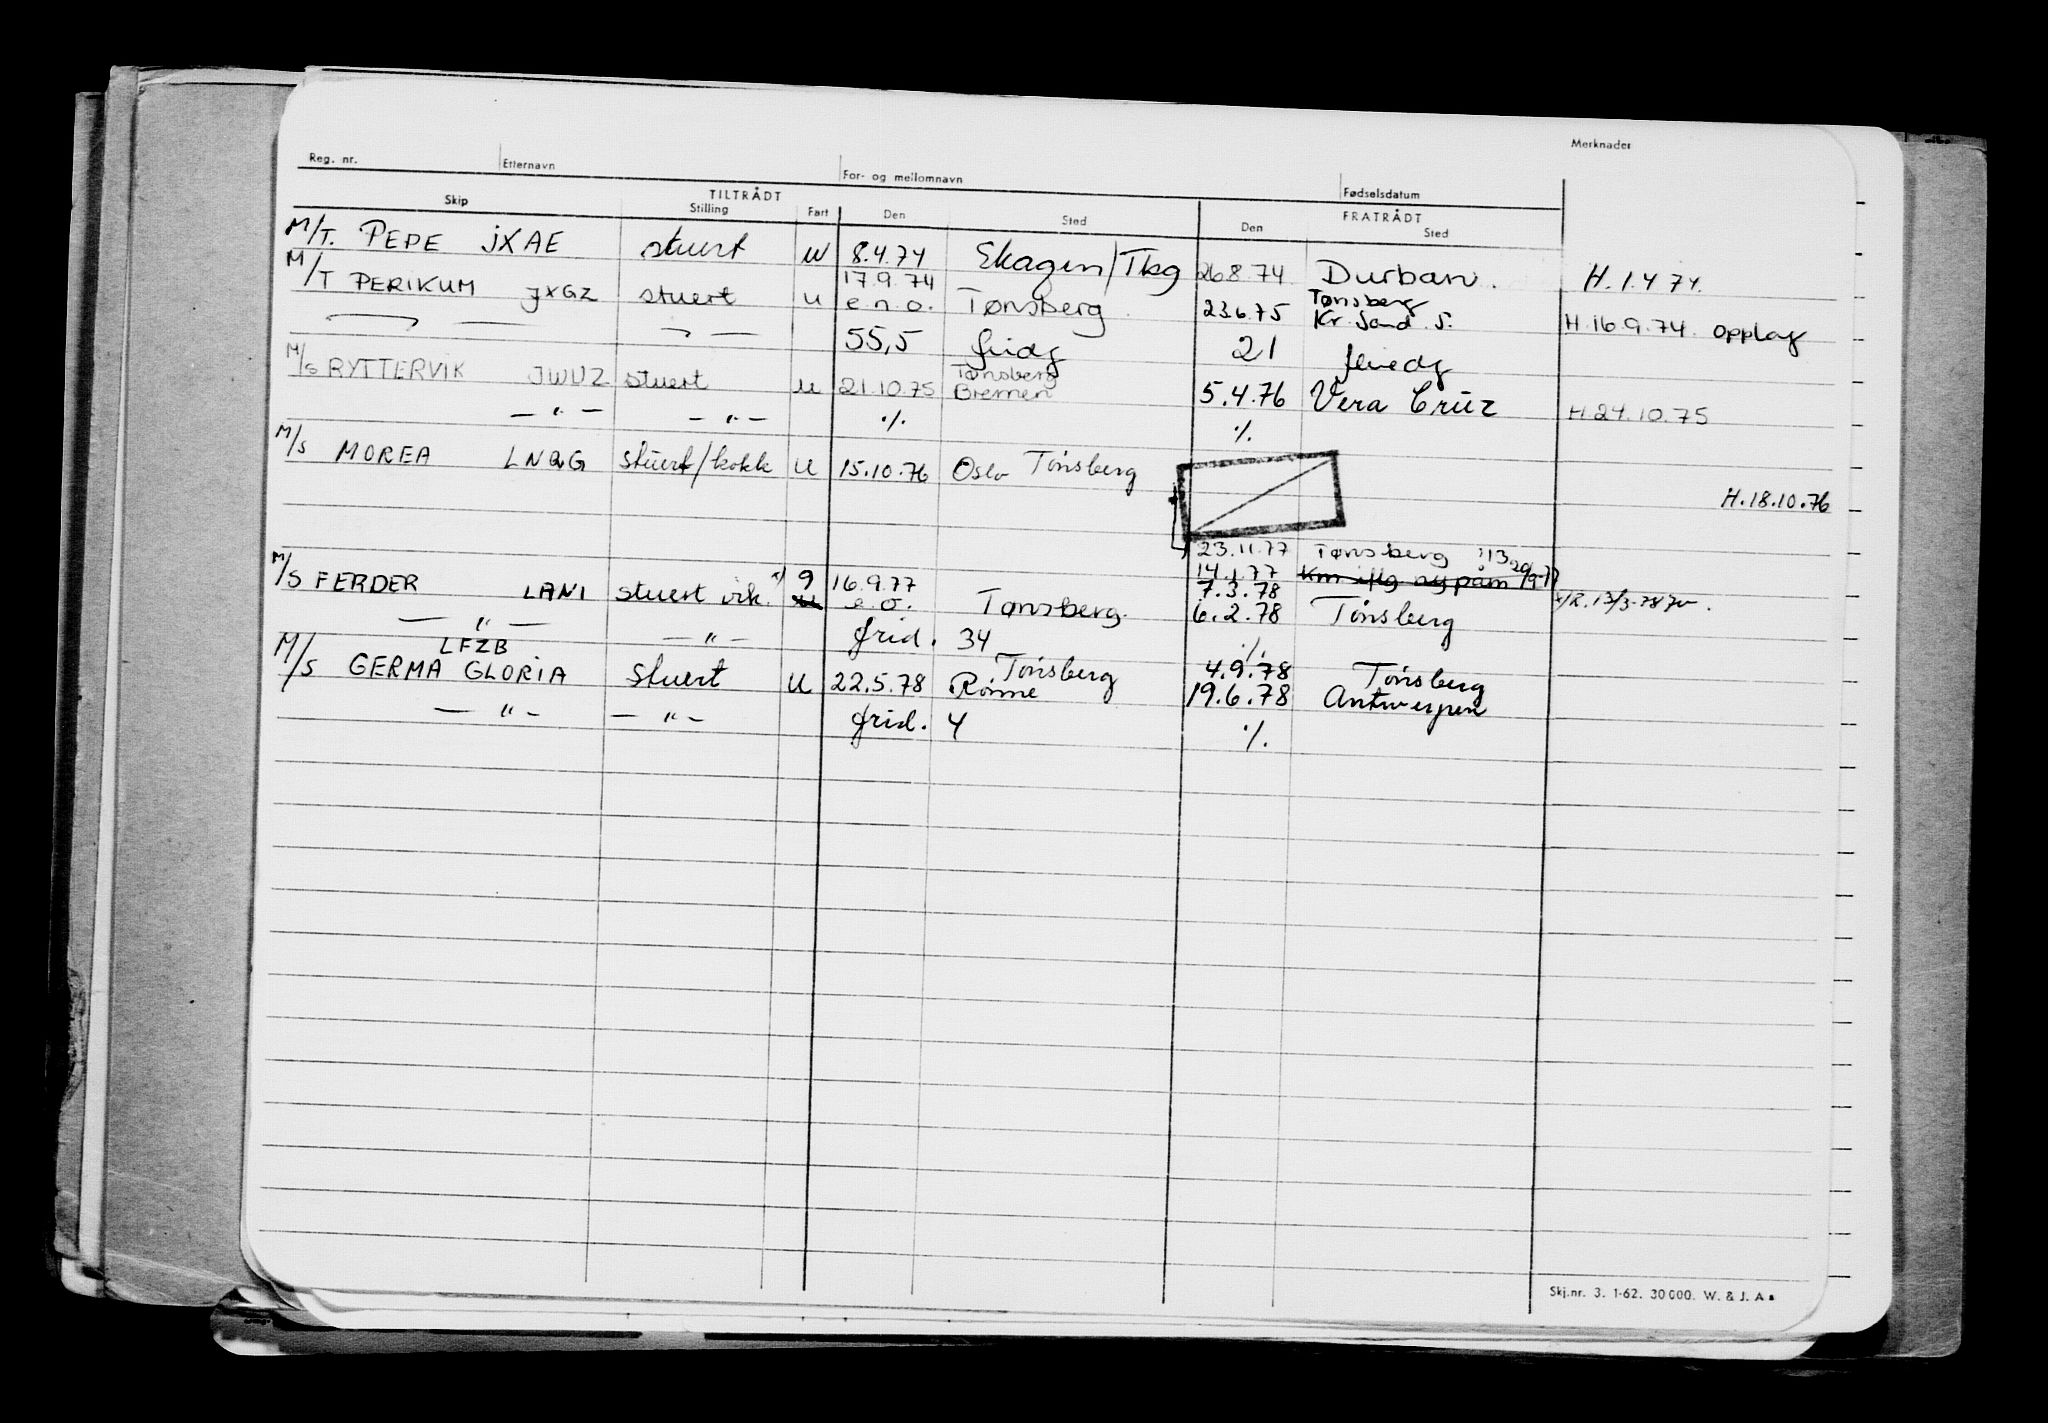 Merknader
Reg. nr. Etternavn For- og mellomnavn Fødselsdatum
TILTRÅDT FRATRÅDT
Skip Stilling Fart Den Sted Den Sted
M/T. PEPE JXAE stuert u 8.4.74 Skagen/Tbg 26.8.74 Durban. H. 1.4 74.
17.9.74 Tønsberg
M/T PERIKUM JXGZ stuert u e.n.o. Tønsberg. 23.6.75 Kr. Sand. S. H. 16.9.74. Opplag
55,5 fridg 21 feriedg
Tønsberg
M/S RYTTERVIK JWUZ stuert u 21.10.75 Bremen 5.4.76 Vera Cruz H.24.10.75
— " — — " — ./. ./.
M/S MOREA LNQG stuert/kokk u 15.10.76 Oslo Tönsberg
H.18.10.76
23.11.77 Tønsberg
14.1.77
M/S FERDER LANI stuert vik. x) 9 16.9.77 7.3.78
e.o. Tønsberg. 6.2.78 Tönsberg x/R. 13/3-78
— " — — " — frid. 34 ./.
LFZB Tönsberg 4.9.78 Tönsberg
M/S GERMA GLORIA Stuert u 22.5.78 Rönne 19.6.78 Antwerpen
— " — — " — frid. 4 ./.
Skj.nr. 3. 1-62. 30000. W. & J. A s